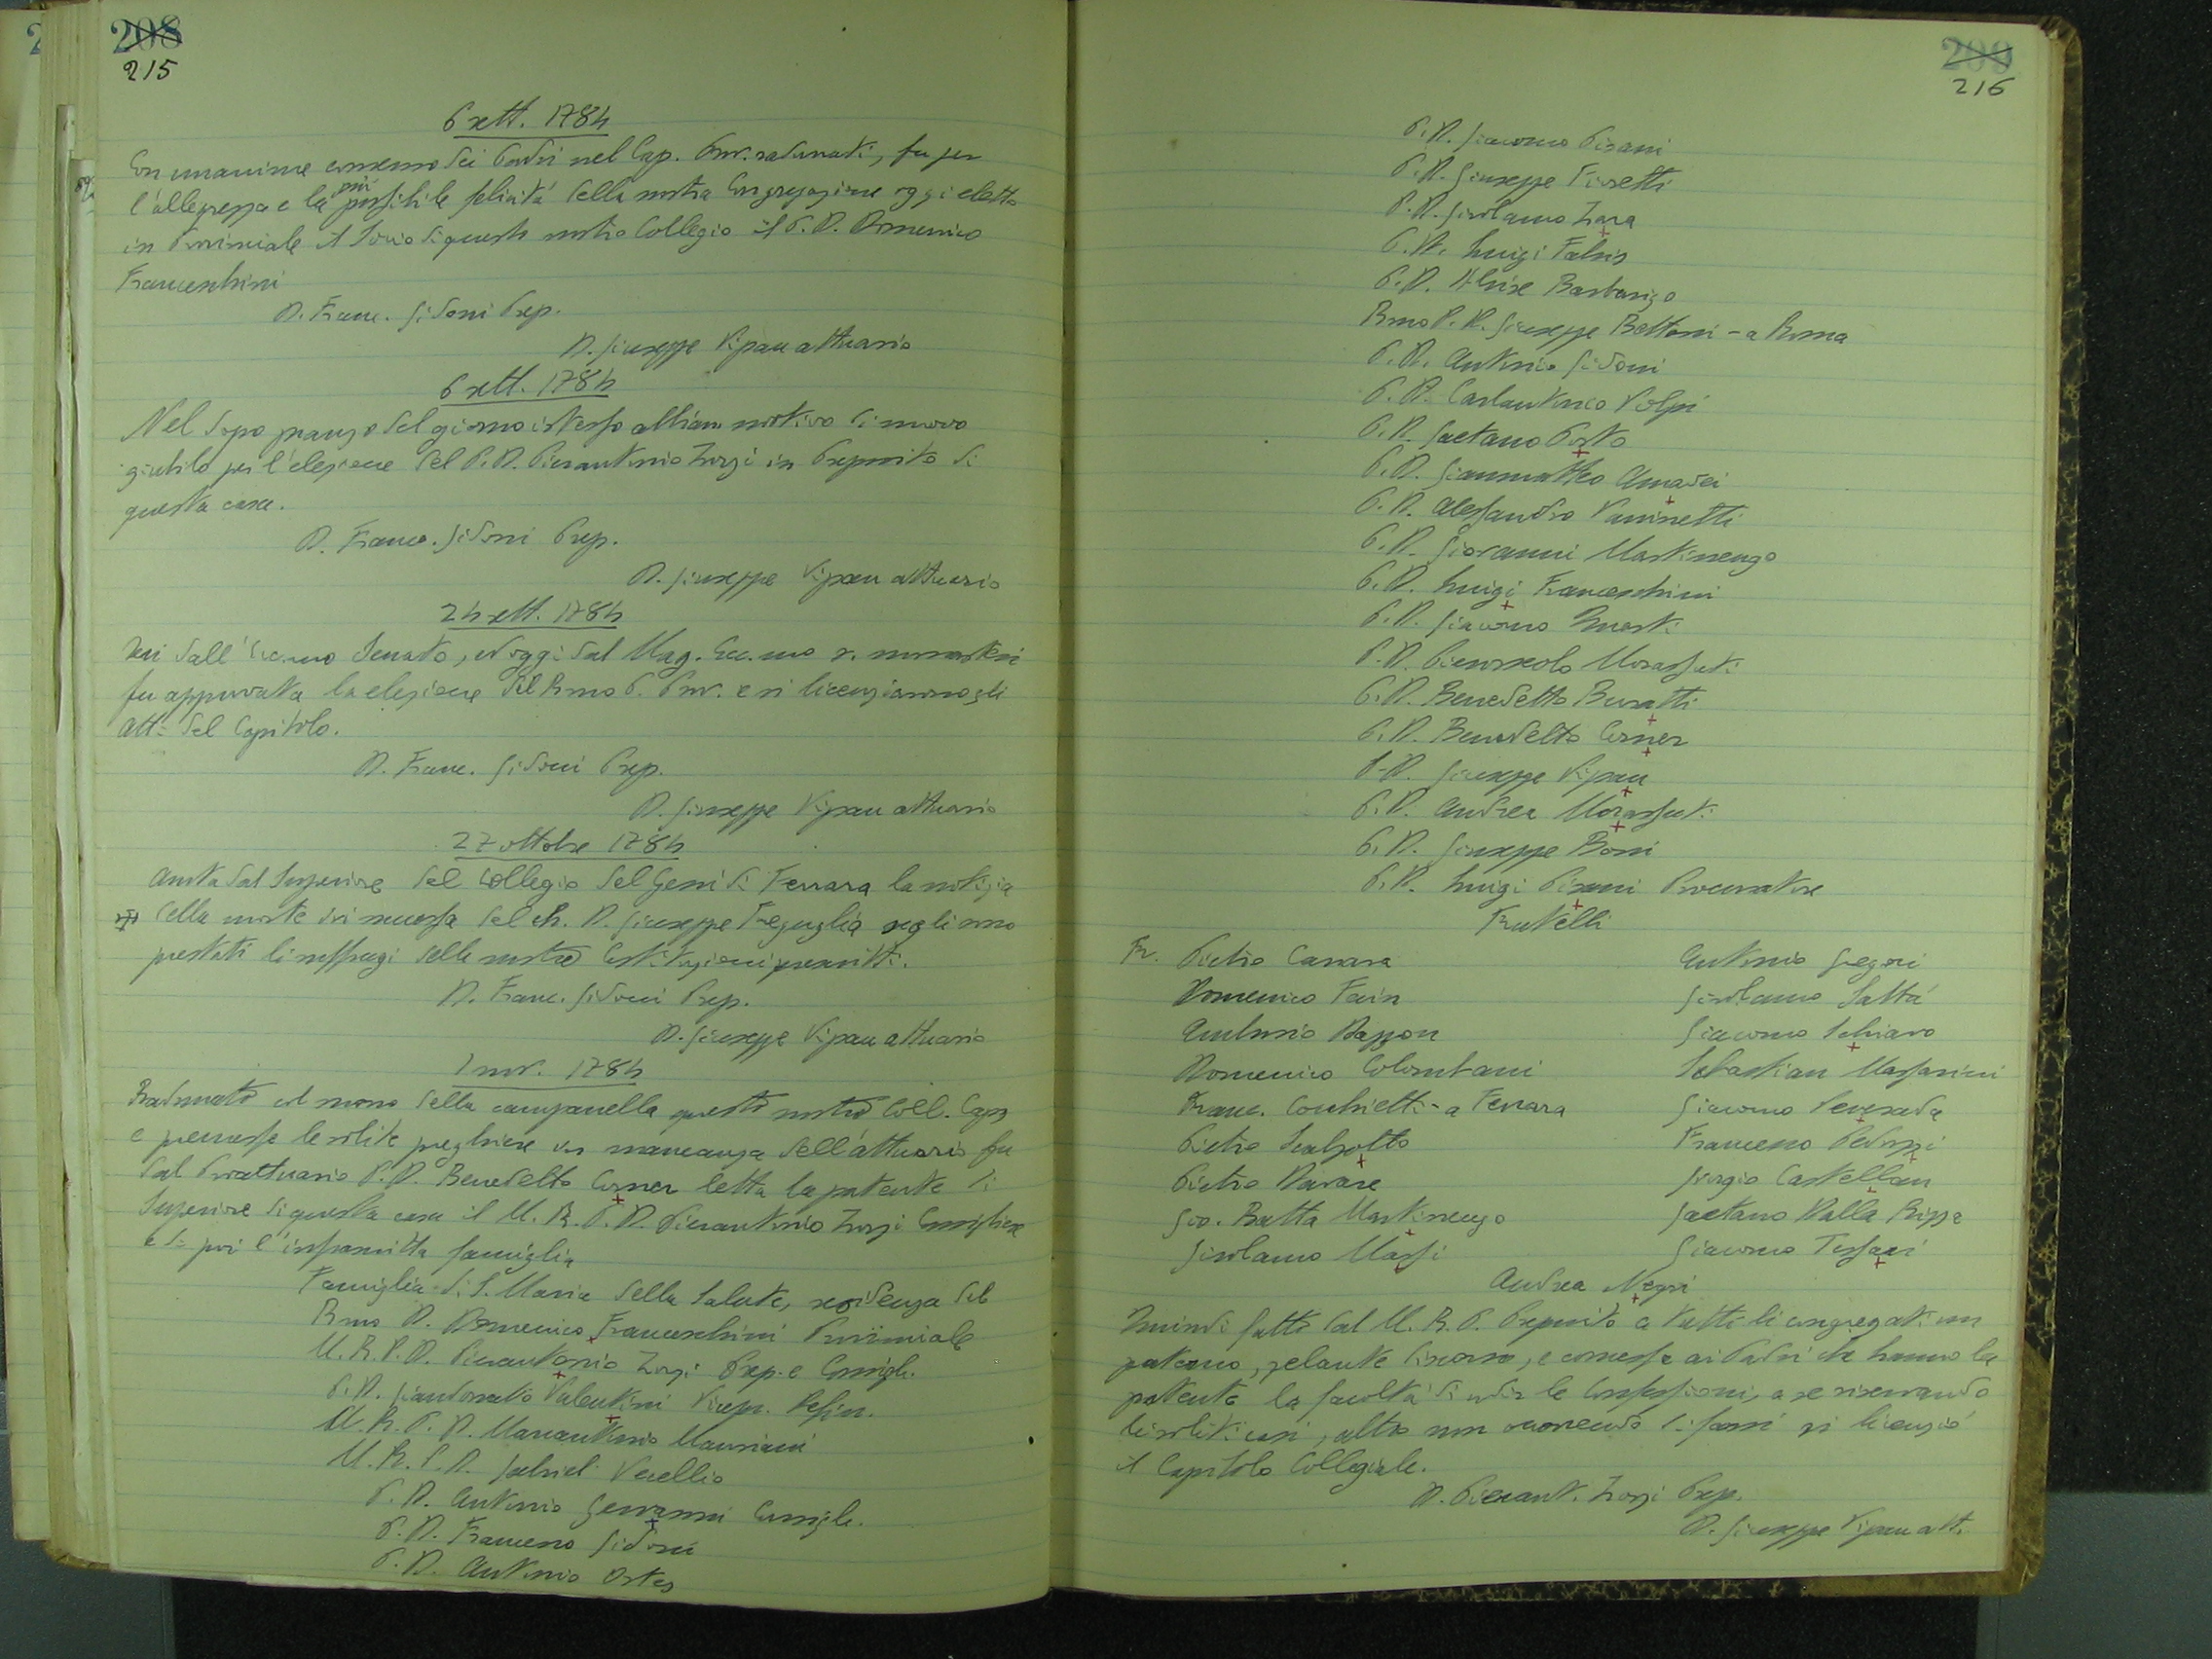 208
215
6 sett. 1784
Con unanime consenso dei Padri nel Cap. Prov. radunati, fu per
l'allegrezza e la più possibile felicità della nostra Congregazione oggi eletto
in Provinciale il Socio di questo nostro Collegio il P. D. Domenico
Franceschini
D. Franc. Gidoni Prep.
D. Giuseppe Vipau attuario
6 sett. 1784
Nel dopo pranzo del giorno istesso abbiam motivo di nuovo
giubilo per l'elezione del P. D. Pierantonio Zorzi in Preposito di
questa casa.
D. Franc. Gidoni Prep.
D. Giuseppe Vipau attuario
24 sett. 1784
Ieri dall'Ecc.mo Senato, ed oggi dal Mag. Ecc.mo s. monasteri
fu approvata la elezione del Rmo P. Prov. e si licenziarono gli
atti del Capitolo.
D. Franc. Gidoni Prep.
D. Giuseppe Vipau attuario
27 ottobre 1784
Avuta dal Superiore del Collegio del Gesù di Ferrara la notizia
della morte ivi successa del ch. D. Giuseppe Freguglia segli sono
prestati li suffragi dalle nostre Costituzioni prescritti.
D. Franc. Gidoni Prep.
D. Giuseppe Vipau attuario
1 nov. 1784
Radunato col suono della campanella questo nostro Coll. Cap.
e premesse le solite preghiere in mancanza dell'attuario fu
dal Proattuario P. D. Benedetto Corner letta la patente di
Superiore di questa casa il M. R. P. D. Pierantonio Zorzi Consigliere
e di poi l'infrascritta famiglia
Famiglia di S. Maria della Salute, residenza del
Rmo D. Domenico Franceschini Provinciale
M. R. P. D. Pierantonio Zorzi Prep. e Consigl.
P. D. Giandonato Valentini Vicepr. Defin.
M. R. P. D. Marcantonio Mauriani
M. R. P. D. Gabriel Vecellio
P. D. Antonio Gervasoni Consigl.
P. D. Francesco Gidoni
P. D. Antonio Ostes
209
216
P. D. Giacomo Pisani
P. D. Giuseppe Fioretti
P. D. Girolamo Zara
P. D. Luigi Fabris
P. D. Alvise Barbarigo
Rmo P. D. Giuseppe Bettoni - a Roma
P. D. Antonio Gidoni
P. D. Carlantonio Volpi
P. D. Gaetano Porto
P. D. Gianmatteo Amadei
P. D. Alessandro Vaninetti
P. D. Giovanni Martinengo
P. D. Luigi Franceschini
P. D. Giacomo
P. D. Piernicolò Morassuti
P. D. Benedetto Buratti
P. D. Benedetto Corner
P. D. Giuseppe Vipau
P. D. Andrea Morassuti
P. D. Giuseppe Boni
P. D. Luigi Pisani Procuratore
Fratelli
Fr. Pietro Carrara
Antonio Gregori
Domenico Fain
Girolamo Saltà
Ambrosio Dazzon
Giacomo Schiavo
Domenico Colombani
Sebastian Massarini
Franc. Cochietti - a Ferrara
Giacomo
Pietro Scalzotto
Francesco Peduzzi
Pietro Davare
Giorgio Castellan
Gio. Batta Martinengo
Gaetano Dalla Rizza
Girolamo Massi
Giacomo Tessari
Andrea Negri
Quindi fatto dal M. R. P. Preposito a tutti li congregati un
paterno, zelante discorso, e concessa ai Padri che hanno la
patente la facoltà di udir le Confessioni, a se riservando
li soliti casi, altro non occorrendo di farsi si licenziò
il Capitolo Collegiale.
D. Pierant. Zorzi Prep.
D. Giuseppe Vipau att.